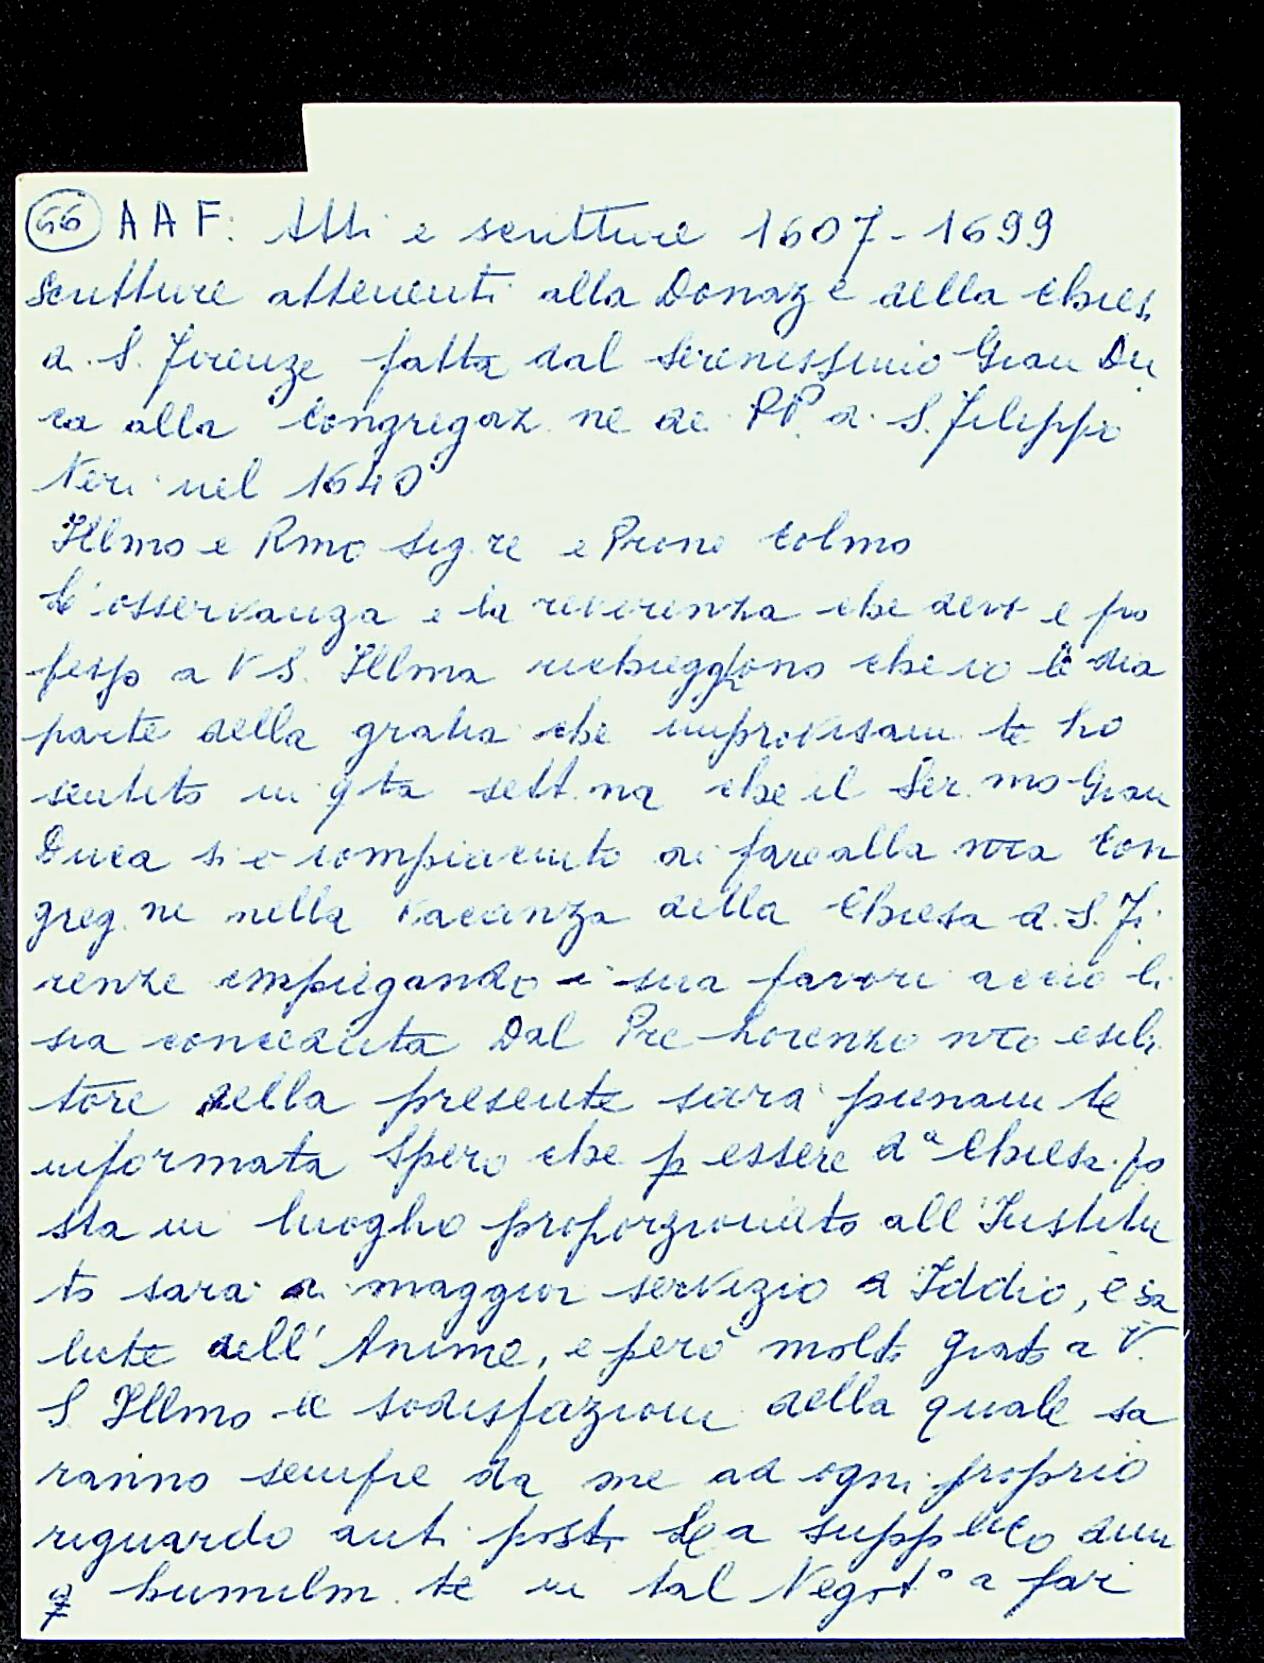 66 AAF: Atti e scritture 1607-1699
Scritture attenenti alla Donaz e della Chies.
di S. Firenze fatta dal Serenissimo Gran Du
ca alla Congregaz. ne de PP. di S. Filippo
Neri nel 1640
Illmo e Rmo Sig. re e Prone Colmo
L'osservanza e la reverenza che devo e pro
fesso a V S. Illma richieggono che io le dia
parte della gratia che improvisam. te ho
sentito in qta sett. na che il Ser. mo Gran
Duca si è compiaciuto di fare alla nra Con
greg. ne nella vacanza della Chiesa di S. Fi
renze impiegando i sua favori acciò li
sia conceduta Dal Pre Lorenzo nro esibi
tore della presente sarà pienam te
informata Spero che p essere d.a Chiesa po
sta in luogho proporzionato all'Institu
to sarà di maggior servizio a Iddio, e sa
lute dell'Anime, e però molto grato a V.
S Illmo le sodisfazioni della quale sa
ranno sempre da me ad ogni proprio
riguardo anti posti La supplico dun
q humilm. te in tal Negot° a far